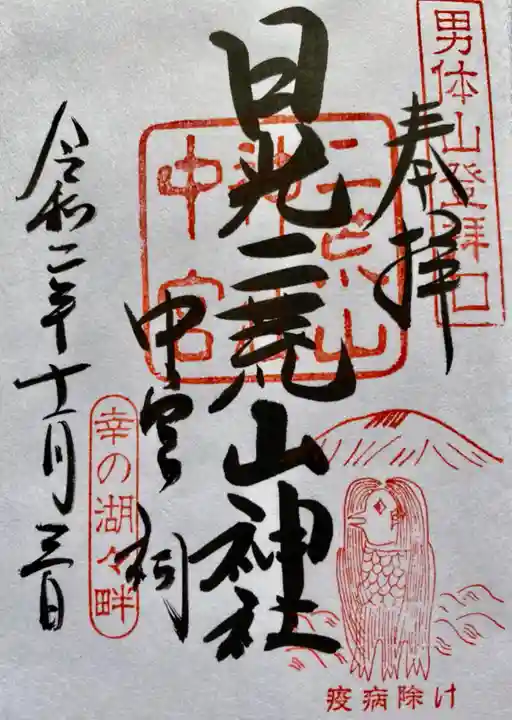 男体山登拝口
奉拝
日光二荒山神社
中宮祠
二荒山
神社
中宮
幸の湖々畔
令和二年十一月三日
疫病除け